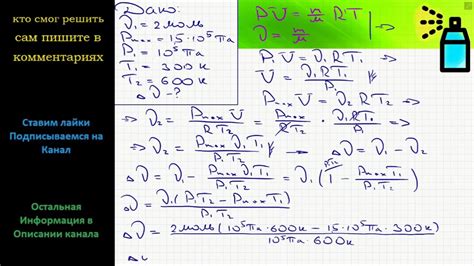 кто смог решить
сам пишите в
комментариях
Ставим лайки
Подписываемся на
Канал
Остальная
Информация в
Описании канала
Дано:
ϑ₁ = 2 моль
Pmax = 1.5·10⁵ Па
P₁ = 10⁵ Па
T₁ = 300 К
T₂ = 600 К
Δϑ - ?
PV = m/μ RT
ϑ = m/μ
P₁V = ϑ₁RT₁
V = ϑ₁RT₁/P₁
PmaxV = ϑ₂RT₂ =>
=> ϑ₂ = PmaxV/RT₂ = Pmax/RT₂ · ϑ₁RT₁/P₁ =>
=> ϑ₂ = Pmaxϑ₁T₁/P₁T₂ => Δϑ = ϑ₁ - ϑ₂
Δϑ = ϑ₁ - Pmaxϑ₁T₁/P₁T₂ = ϑ₁(1 - PmaxT₁/P₁T₂)
Δϑ = ϑ₁(P₁T₂ - PmaxT₁)/P₁T₂
Δϑ = 2 моль(10⁵Па·600К - 1.5·10⁵Па·300К)/10⁵Па·600К